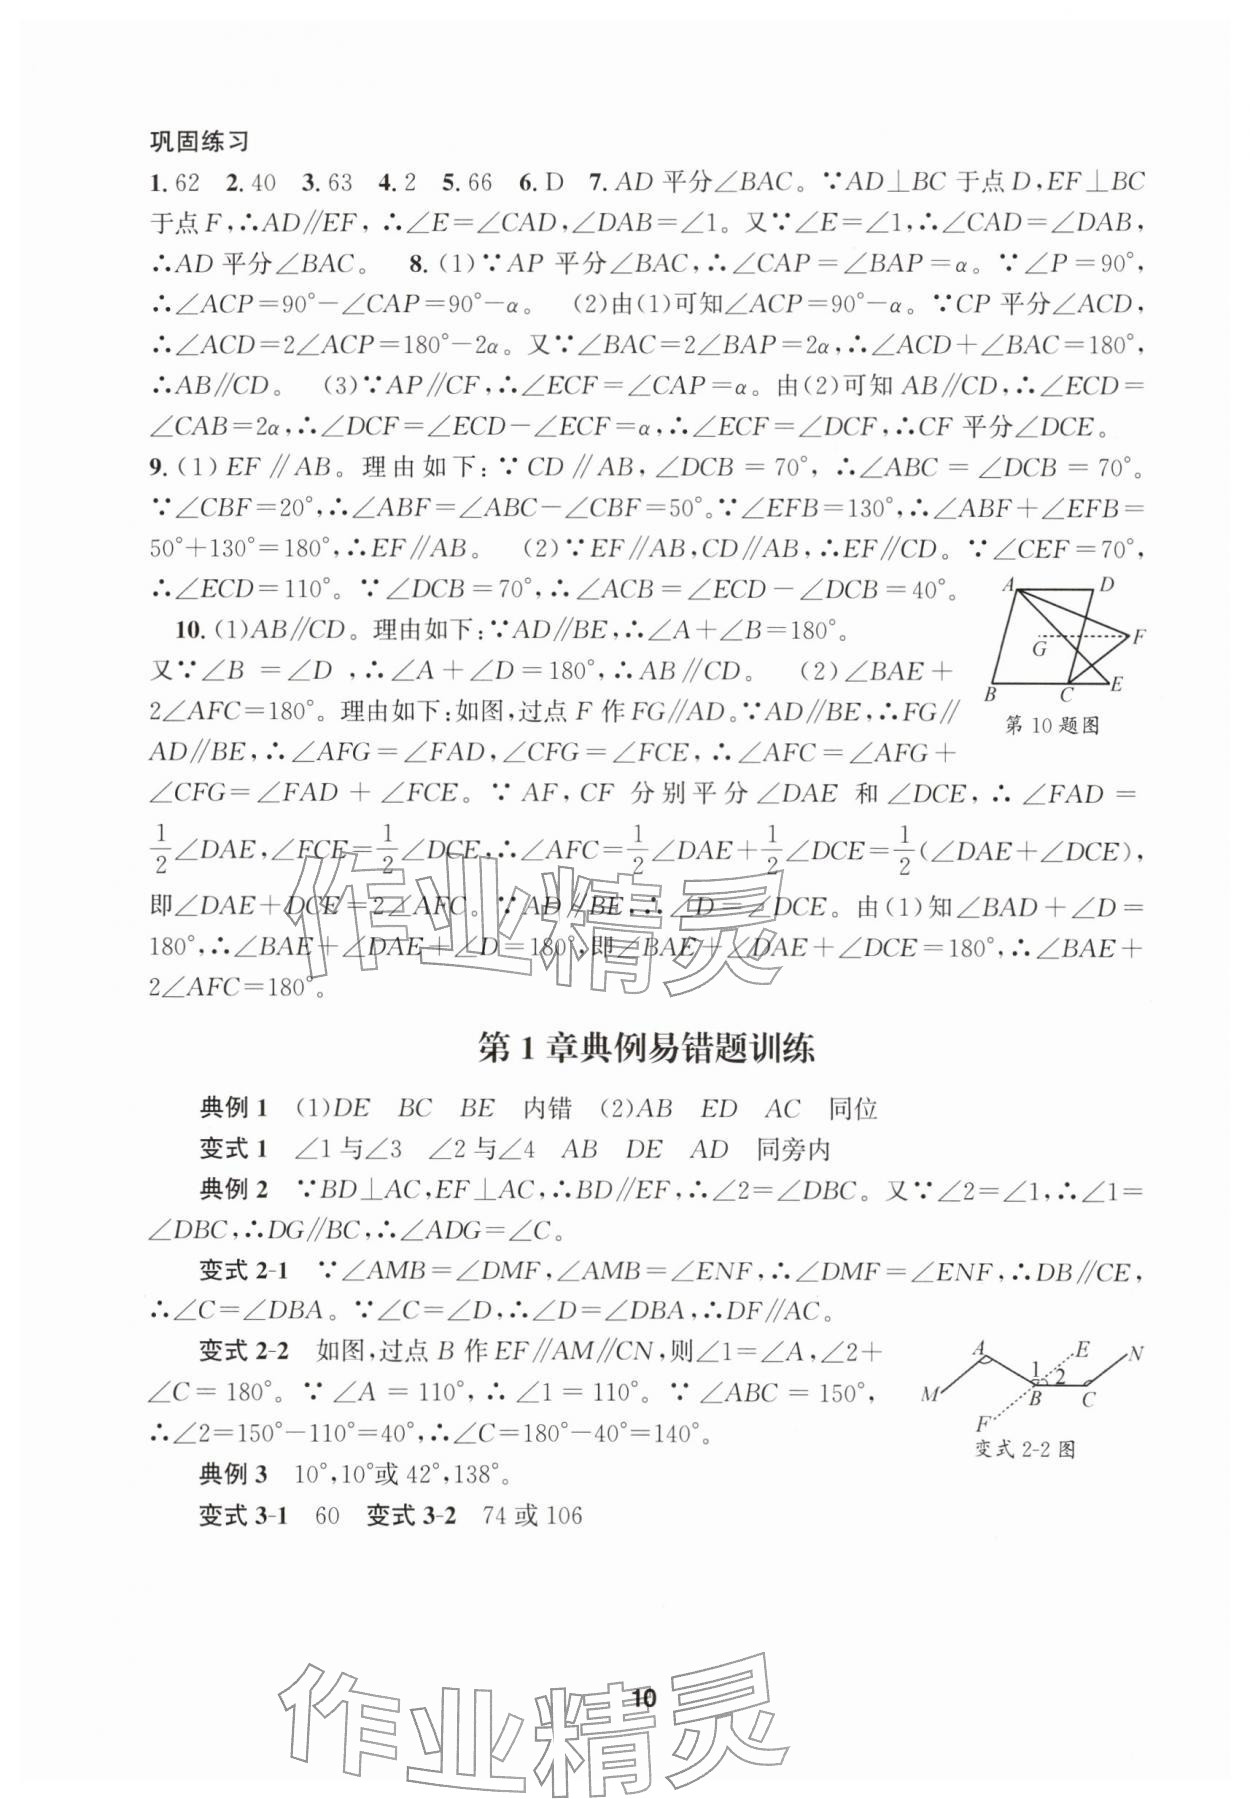 巩固练习
1.62 2.40 3.63 4.2 5.66 6.D 7.AD平分∠BAC。∵AD⊥BC于点D,EF⊥BC
于点F,∴AD∥EF,∴∠E=∠CAD,∠DAB=∠1。又∵∠E=∠1,∴∠CAD=∠DAB,
∴AD平分∠BAC。 8.(1)∵AP平分∠BAC,∴∠CAP=∠BAP=α。∵∠P=90°,
∴∠ACP=90°-∠CAP=90°-α。 (2)由(1)可知∠ACP=90°-α。∵CP平分∠ACD,
∴∠ACD=2∠ACP=180°-2α。又∵∠BAC=2∠BAP=2α,∴∠ACD+∠BAC=180°,
∴AB∥CD。 (3)∵AP∥CF,∴∠ECF=∠CAP=α。由(2)可知AB∥CD,∴∠ECD=
∠CAB=2α,∴∠DCF=∠ECD-∠ECF=α,∴∠ECF=∠DCF,∴CF平分∠DCE。
9.(1)EF∥AB。理由如下:∵CD∥AB,∠DCB=70°,∴∠ABC=∠DCB=70°。
∵∠CBF=20°,∴∠ABF=∠ABC-∠CBF=50°。∵∠EFB=130°,∴∠ABF+∠EFB=
50°+130°=180°,∴EF∥AB。 (2)∵EF∥AB,CD∥AB,∴EF∥CD。∵∠CEF=70°,
∴∠ECD=110°。∵∠DCB=70°,∴∠ACB=∠ECD-∠DCB=40°。
10.(1)AB∥CD。理由如下:∵AD∥BE,∴∠A+∠B=180°。
又∵∠B=∠D,∴∠A+∠D=180°,∴AB∥CD。 (2)∠BAE+
2∠AFC=180°。理由如下:如图,过点F作FG∥AD。∵AD∥BE,∴FG∥
AD∥BE,∴∠AFG=∠FAD,∠CFG=∠FCE,∴∠AFC=∠AFG+
∠CFG=∠FAD+∠FCE。∵AF,CF分别平分∠DAE和∠DCE,∴∠FAD=
1/2∠DAE,∠FCE=1/2∠DCE,∴∠AFC=1/2∠DAE+1/2∠DCE=1/2(∠DAE+∠DCE),
即∠DAE+∠DCE=2∠AFC。∵AD∥BE,∴∠D=∠DCE。由(1)知∠BAD+∠D=
180°,∴∠BAE+∠DAE+∠D=180°,即∠BAE+∠DAE+∠DCE=180°,∴∠BAE+
2∠AFC=180°。
A D
G F
B C E
第10题图
作业精灵
第1章典例易错题训练
典例1 (1)DE BC BE 内错 (2)AB ED AC 同位
变式1 ∠1与∠3 ∠2与∠4 AB DE AD 同旁内
典例2 ∵BD⊥AC,EF⊥AC,∴BD∥EF,∴∠2=∠DBC。又∵∠2=∠1,∴∠1=
∠DBC,∴DG∥BC,∴∠ADG=∠C。
变式2-1 ∵∠AMB=∠DMF,∠AMB=∠ENF,∴∠DMF=∠ENF,∴DB∥CE,
∴∠C=∠DBA。∵∠C=∠D,∴∠D=∠DBA,∴DF∥AC。
变式2-2 如图,过点B作EF∥AM∥CN,则∠1=∠A,∠2+
∠C=180°。∵∠A=110°,∴∠1=110°。∵∠ABC=150°,
∴∠2=150°-110°=40°,∴∠C=180°-40°=140°。
A E N
1 2
M B C
F
变式2-2图
典例3 10°,10°或42°,138°。
变式3-1 60 变式3-2 74或106
10
作业精灵